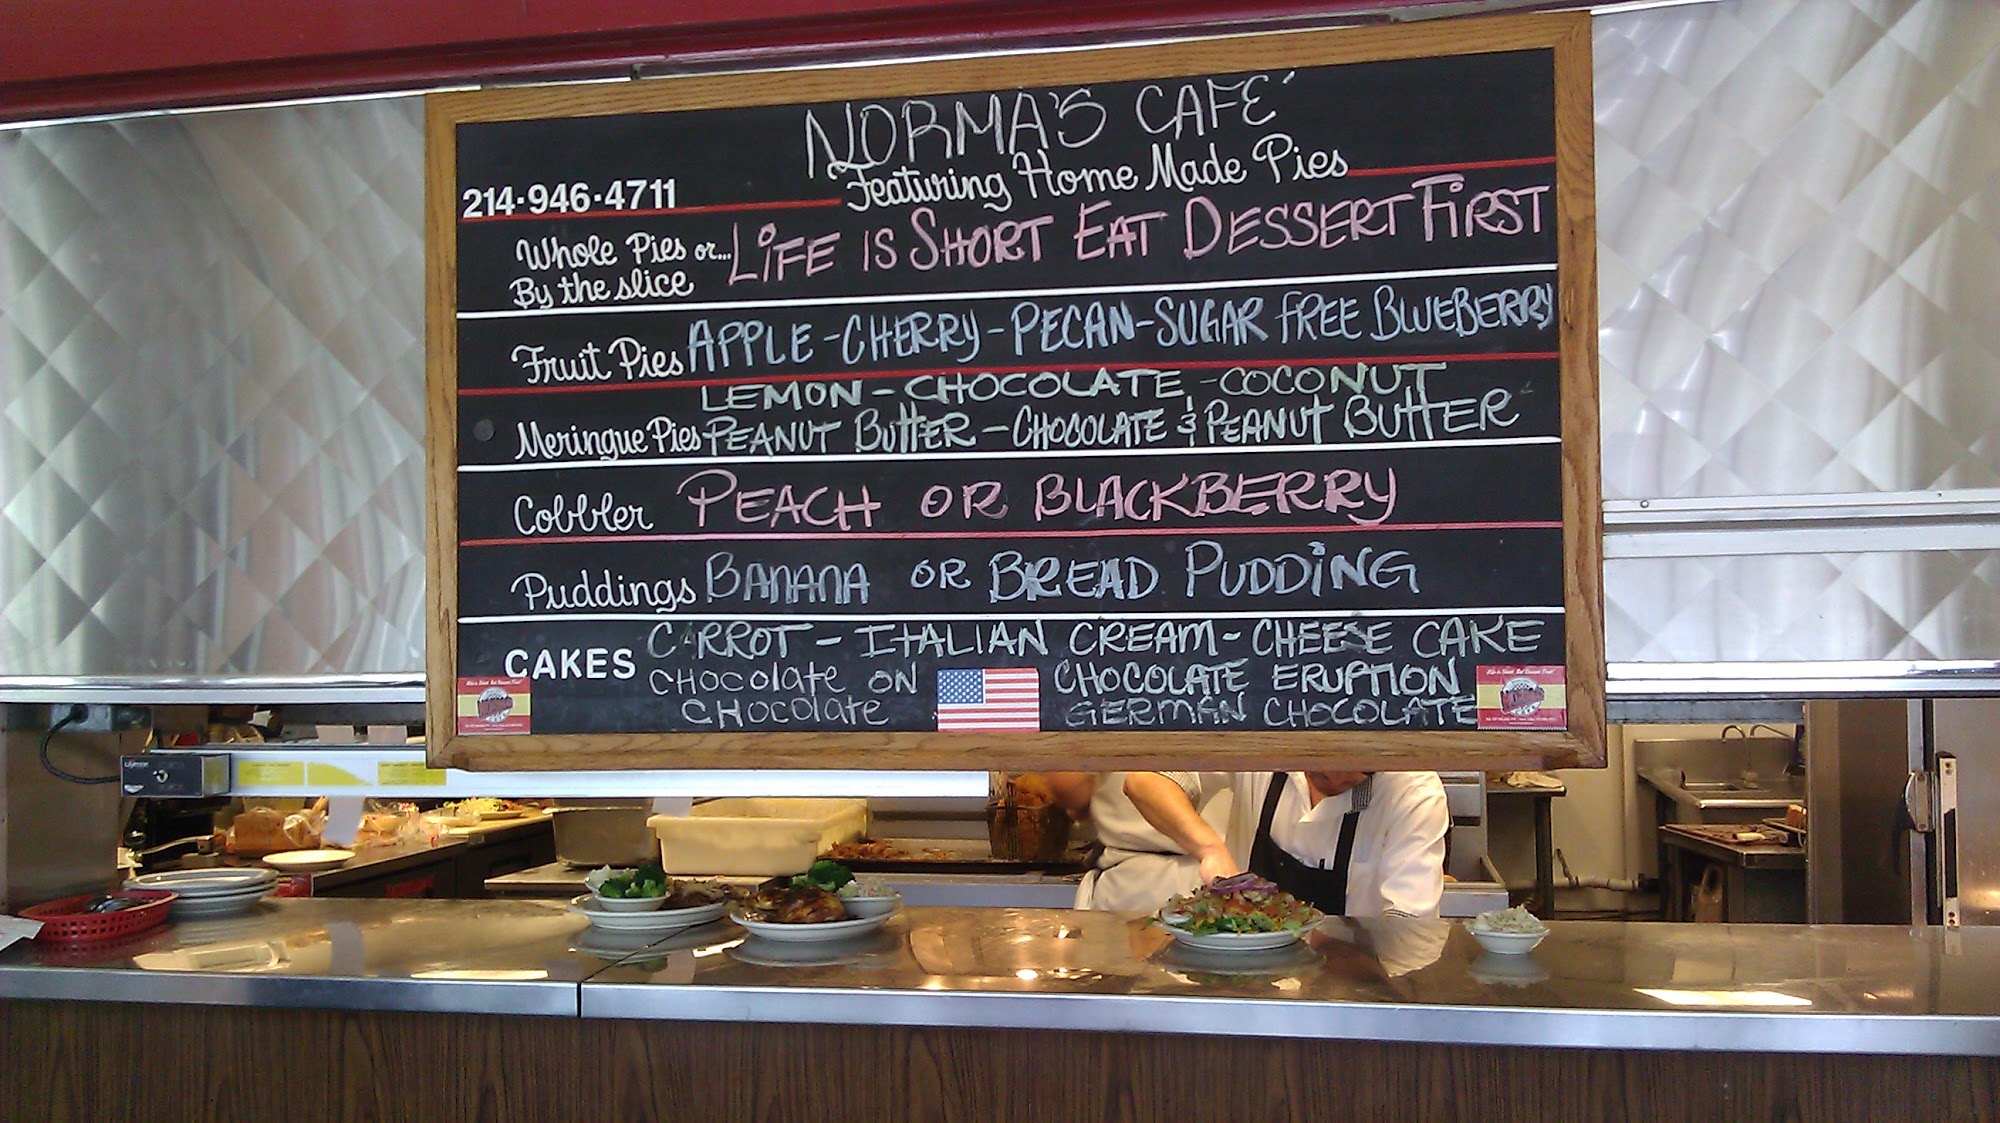 NORMA'S CAFÉ
Featuring Home Made Pies
214·946·4711
Whole Pies or... LIFE IS SHORT EAT DESSERT FIRST
By the slice
Fruit Pies APPLE - CHERRY - PECAN - SUGAR FREE BLUEBERRY
LEMON - CHOCOLATE - COCONUT
Meringue Pies PEANUT BUTTER - CHOCOLATE & PEANUT BUTTER
Cobbler PEACH OR BLACKBERRY
Puddings BANANA OR BREAD PUDDING
CARROT - ITALIAN CREAM - CHEESE CAKE
CAKES CHOCOLATE ON CHOCOLATE ERUPTION
CHOCOLATE GERMAN CHOCOLATE